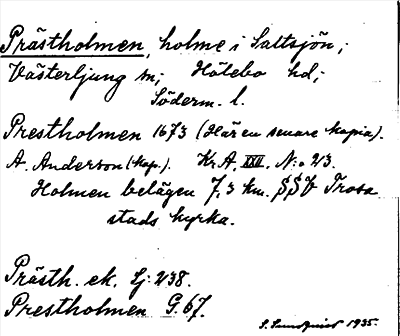 Prästholmen, holme i Saltsjön;
Västerljung sn; Hölebo hd;
Söderm. l.
Prestholmen 1673 (Här en senare kopia).
A. Anderson (Kop.). Kr.A. XXII. N:o 213.
Holmen belägen 7,3 km. SSV Trosa
stads kyrka.
Prästh. ek. Lj: 238.
Prestholmen G. 67.
1935.